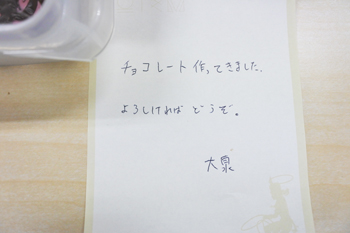 チョコレート作ってきました.
よろしければどうぞ。
大泉